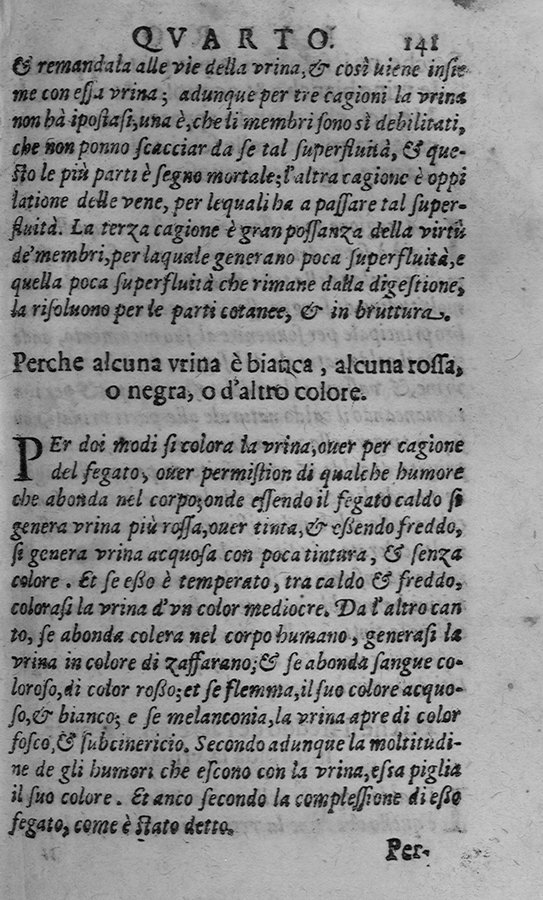 QVARTO. 141
& remandala alle vie della vrina, & così uiene insie
me con essa vrina; adunque per tre cagioni la vrina
non hà ipostasi, una è, che li membri sono sì debilitati,
che non ponno scacciar da se tal superfluità, & que-
sto le più parti è segno mortale; l'altra cagione è oppi
latione delle vene, per lequali ha a passare tal super-
fluità. La terza cagione è gran possanza della virtù
de' membri, per laquale generano poca superfluità, e
quella poca superfluità che rimane dalla digestione,
la risoluono per le parti cotanee, & in bruttura.
Perche alcuna vrina è bianca, alcuna rossa,
o negra, o d'altro colore.
PEr doi modi si colora la vrina, ouer per cagione
del fegato, ouer permistion di qualche humore
che abonda nel corpo; onde essendo il fegato caldo si
genera vrina più rossa, ouer tinta, & eßendo freddo,
si genera vrina acquosa con poca tintura, & senza
colore. Et se eßo è temperato, tra caldo & freddo,
colorasi la vrina d'vn color mediocre. Da l'altro can
to, se abonda colera nel corpo humano, generasi la
vrina in colore di zaffarano; & se abonda sangue co-
loroso, di color roßo; et se flemma, il suo colore acquo-
so, & bianco; e se melanconia, la vrina apre di color
fosco, & subcinericio. Secondo adunque la moltitudi-
ne de gli humori che escono con la vrina, essa piglia
il suo colore. Et anco secondo la complessione di eßo
fegato, come è stato detto.
Per-